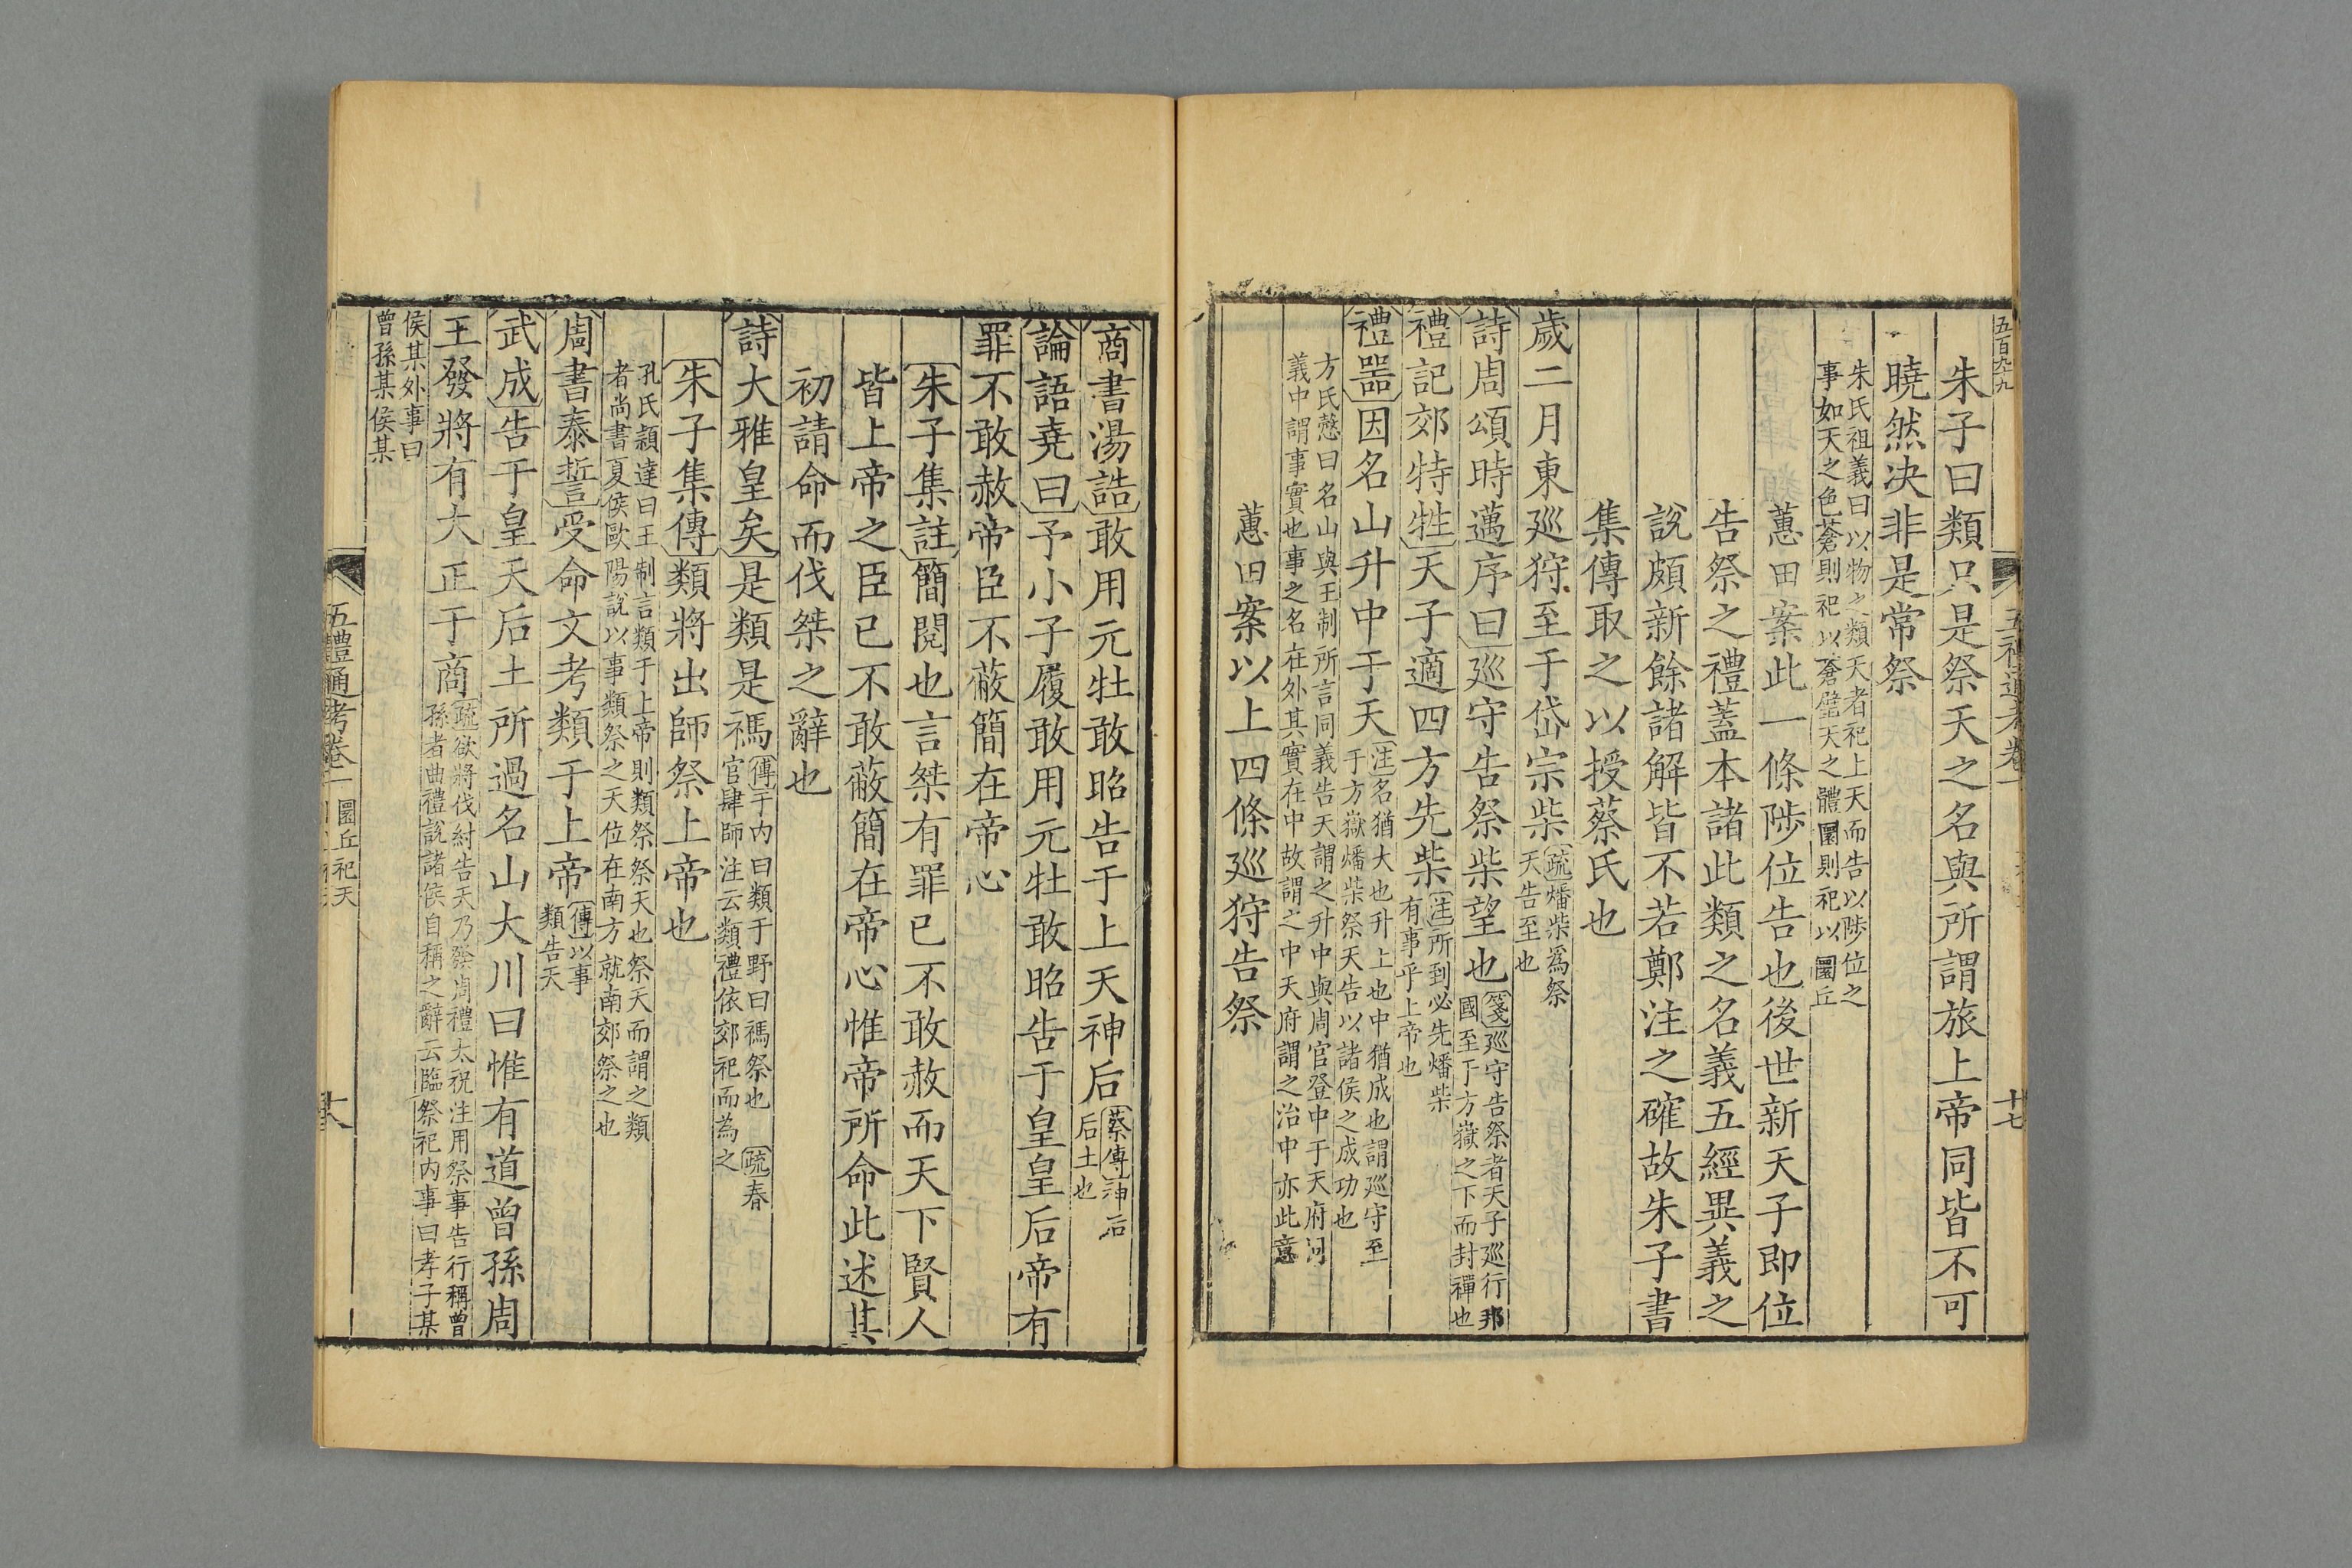 五百六十九
五禮通考卷一
十七
朱子曰類只是祭天之名與所謂旅上帝同皆不可
曉然決非是常祭
朱氏祖義曰以物之類天者祀上天而告以陟位之
事如天之色蒼則祀以蒼璧天之體圜則祀以圜丘
蕙田案此一條陟位告也後世新天子即位
告祭之禮蓋本諸此類之名義五經異義之
說頗新餘諸解皆不若鄭注之確故朱子書
集傳取之以授蔡氏也
歲二月東巡狩至于岱宗柴疏燔柴為祭
天告至也
詩周頌時邁序曰巡守告祭柴望也箋巡守告祭者天子巡行邦
國至于方嶽之下而封禪也
禮記郊特牲天子適四方先柴注所到必先燔柴
有事乎上帝也
禮器因名山升中于天注名猶大也升上也中猶成也謂巡守至
于方嶽燔柴祭天告以諸侯之成功也
方氏慤曰名山與王制所言同義告天謂之升中與周官登中于天府同
義中謂事實也事之名在外其實在中故謂之中天府謂之治中亦此意
蕙田案以上四條巡狩告祭
商書湯誥敢用元牡敢昭告于上天神后蔡傳神后
后土也
論語堯曰予小子履敢用元牡敢昭告于皇皇后帝有
罪不敢赦帝臣不蔽簡在帝心
朱子集註簡閱也言桀有罪已不敢赦而天下賢人
皆上帝之臣已不敢蔽簡在帝心惟帝所命此述其
初請命而伐桀之辭也
詩大雅皇矣是類是禡傳于內曰類于野曰禡祭也 疏春
官肆師注云類禮依郊祀而為之
朱子集傳類將出師祭上帝也
孔氏穎達曰王制言類于上帝則類祭祭天也祭天而謂之類
者尚書夏侯歐陽說以事類祭之天位在南方就南郊祭之也
周書泰誓受命文考類于上帝傳以事
類告天
武成告于皇天后土所過名山大川曰惟有道曾孫周
王發將有大正于商疏欲將伐紂告天乃發周禮太祝注用祭事告行稱曾
孫者曲禮說諸侯自稱之辭云臨祭祀內事曰孝子某
侯某外事曰
曾孫某侯某
五禮通考卷一
圜丘祀天
十八